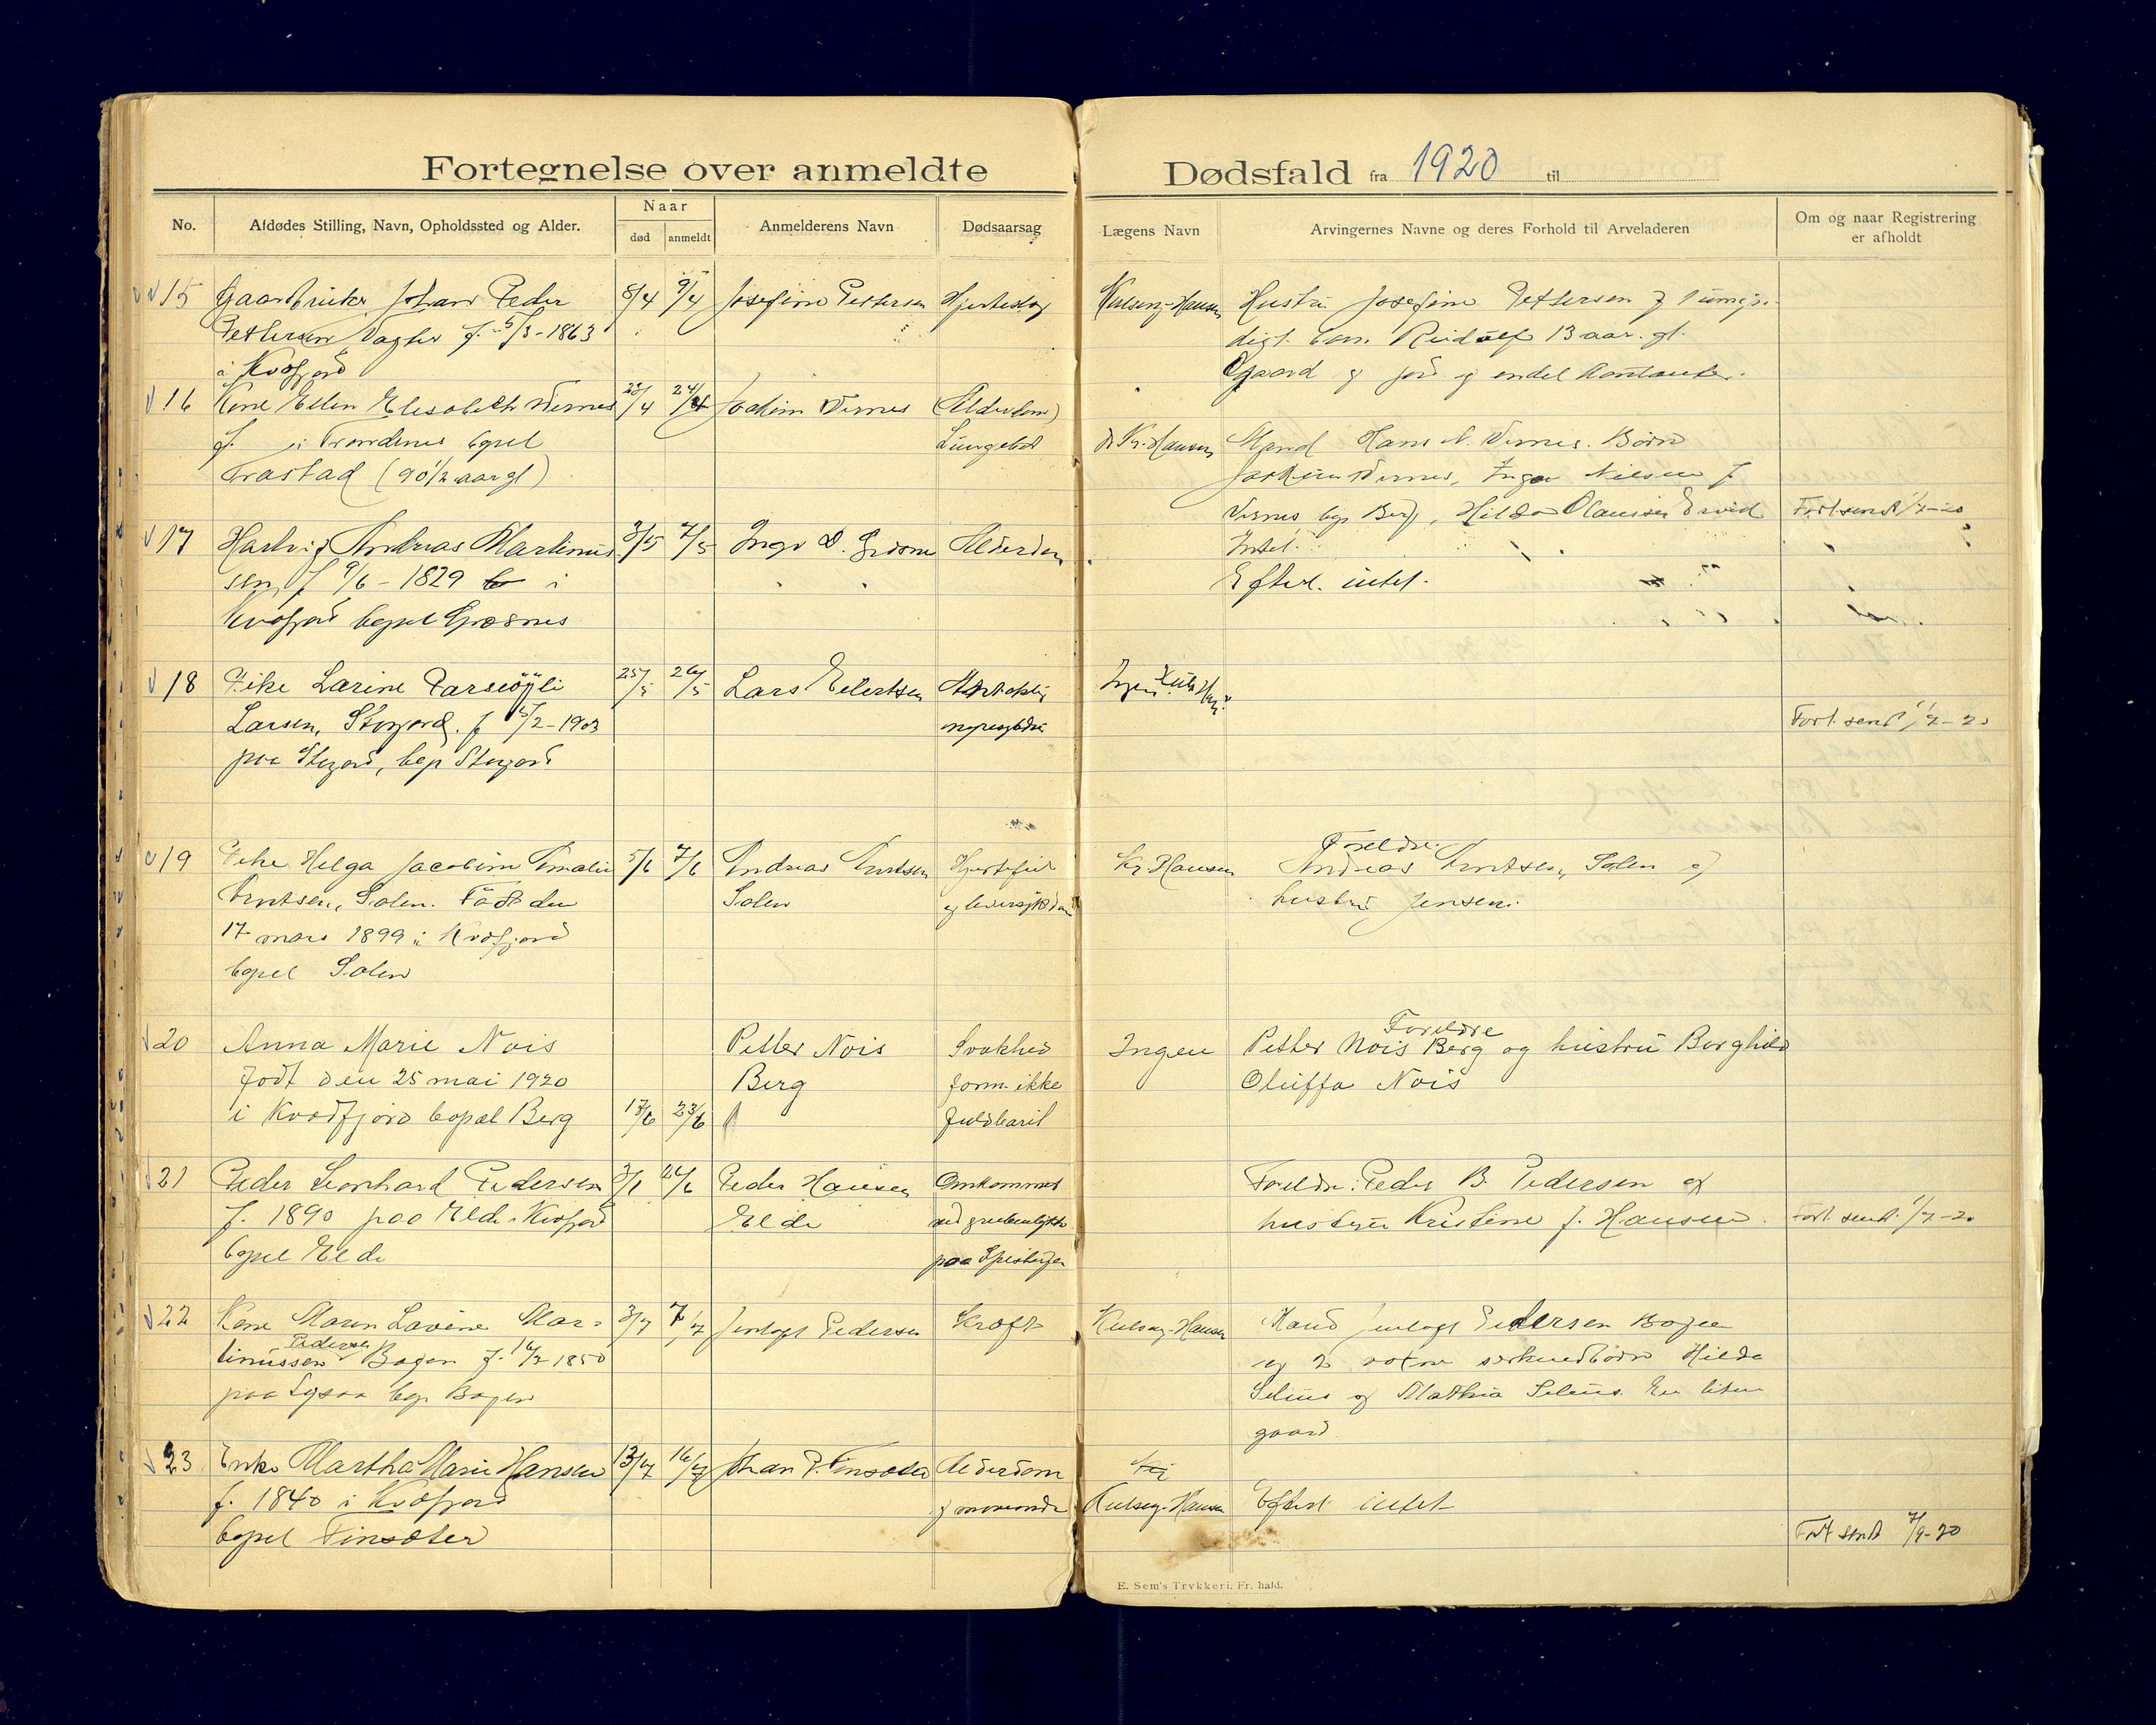 Fortegnelse over anmeldte
No. Afdødes Stilling, Navn, Opholdssted og Alder. Naar død anmeldt Anmelderens Navn Dødsaarsag
15 Gaardbruker Johan Peder 8/4 9/4 Josefine Pettersen Hjerteslag
Pettersen f. 5/3-1863
i Kvæfjord
16 Kone Ellen Elisabeth Vernes 20/4 24/4 Joakim Vernes (Alderdom)
f. i Trondenes bopel Lungebet
Trastad (90 1/2 aar gl)
17 Hartvig Andreas Martinus- 3/5 7/5 Inga D. Alderdom
sen, f 9/6-1829 i
Kvæfjord bopel Græsnes
18 Pike Larine Parseøyli 25/5 26/5 Lars Eilertsen
Larsen, Storjord. f /2-1903
paa Storjord, bop Storjord
19 Pike Helga Jacobine Amalie 5/6 7/6 Andreas Arntsen Hjertefeil
Arntsen, Salen. Født den Salen
17 mars 1899 i Kvæfjord
bopel Salen
20 Anna Marie Nois Petter Nois Svakhed
født den 25 mai 1920 Berg form. ikke
i Kvædfjord bopæl Berg 17/6 23/6 fuldbaaret
21 Peder Leonhard Pedersen 3/1 24/6 Peder Hansen Omkommet
f. 1890 paa Elde i Kvæfjord Elde ved grubeulykke
bopel Elde paa Spitsbergen
22 Kone Maren Lavine Mar- 3/7 7/7 Jentoft Pedersen Kræft
Pedersen
tinussen Bogen f. 16/2 1850
paa bop Bogen
23 Enke Martha Marie Hansen 13/7 16/7 Johan P. Finsæter Alderdom
f. 1840 i Kvæfjord
bopel Finsæter
Dødsfald fra 1920 til
Lægens Navn Arvingernes Navne og deres Forhold til Arveladeren Om og naar Registrering er afholdt
Hansen Hustru Josefine Pettersen f umyn-
digt barn Rudolf 13 aar. gl.
Gaard og jord og endel kontanter.
Dr Kr. Hansen Mand Hans N. Vernes. Børn
Joakim Vernes, Inga Nilsen f
Vernes, bop Berg, Hilda Olaussen Fort. sendt 1/7-20
Intet.
Efterl. intet.
Ingen
Fort. sendt 1/7-20
Foreldre
Kr Hansen Andreas Arntsen, Salen og
hustru Jensen.
Foreldre
Ingen Petter Nois Berg og hustru Borghild
Oluffa Nois
Foreldre: Peder B. Pedersen og
hustru Kristine f. Hansen. Fort. sendt 1/7-20
Hansen Mand Jentoft Pedersen Bogen
og 2 Hilda
Selius og Mathia Selius. En liten
gaard
Kr
Hansen Efterl intet
Fort sendt 7/9-20
E. Sem's Trykkeri, Fr. hald.